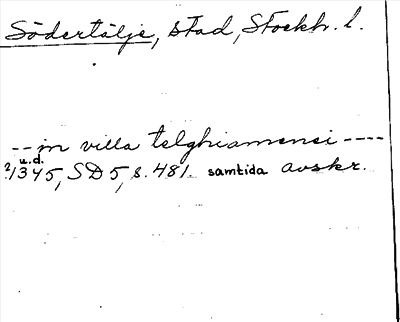 Södertälje, stad, Stockh. l.
-- in villa telghiamensi ----
u.d.
?1345, SD 5, s. 481. samtida avskr.